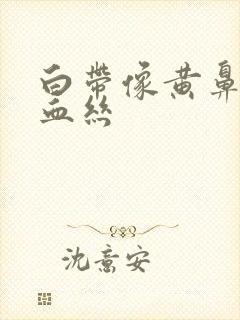 白帶像黄鼻
血絲
沈意安